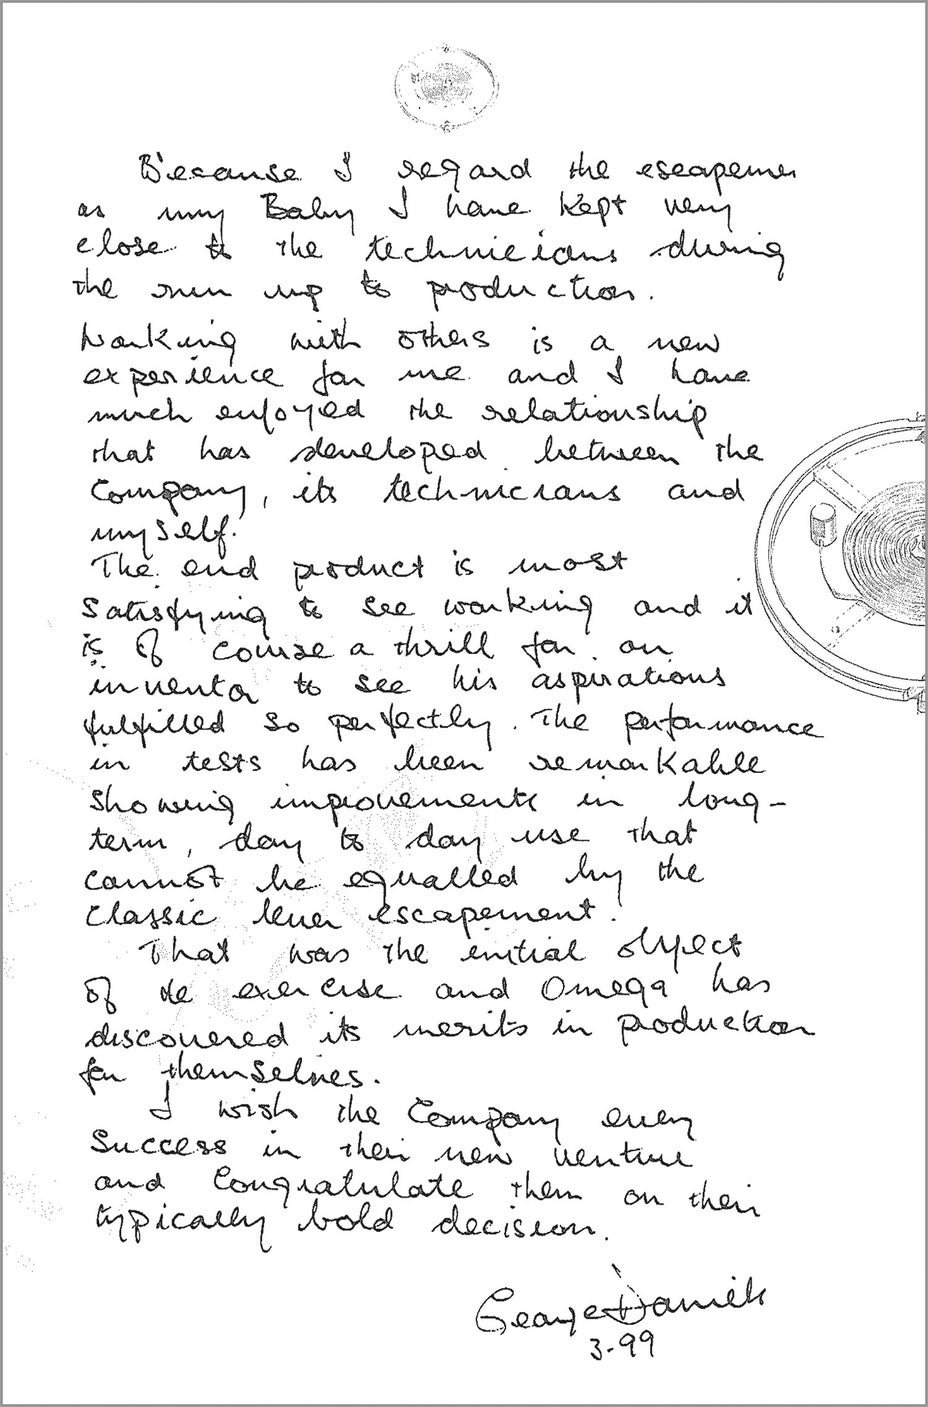 Because I regard the escapemen
as my Baby I have kept very
close to the technicians during
the run up to production.
Working with others is a new
experience for me and I have
much enjoyed the relationship
that has developed between the
Company, its technicians and
myself.
The end product is most
satisfying to see working and it
is of course a thrill for an
inventor to see his aspirations
fulfilled so perfectly. The performance
in tests has been remarkable
showing improvements in long-
term, day to day use that
cannot be equalled by the
classic lever escapement.
That was the initial object
of the exercise and Omega has
discovered its merits in production
for themselves.
I wish the Company every
Success in their new venture
and Congratulate them on their
typically bold decision.
George Daniels
3-99